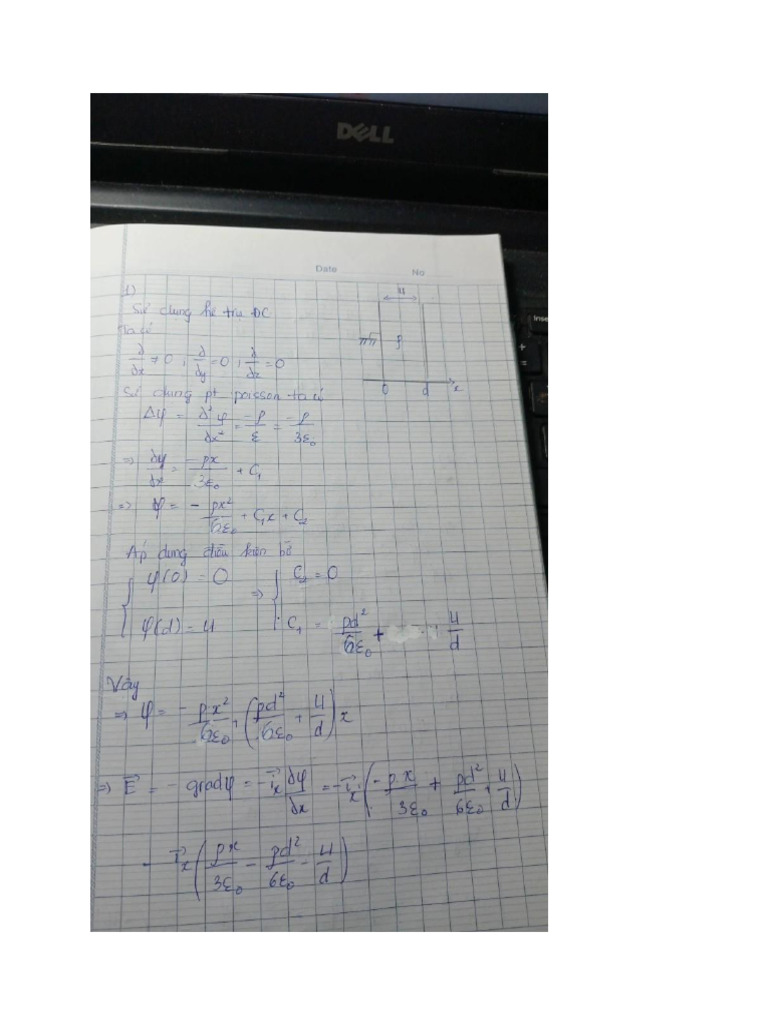 DELL
Date No
Inse
1)
Sử dụng hệ trụ DC
Ta có
∂/∂x ≠ 0 , ∂/∂y = 0 , ∂/∂z = 0
U
ρ
0 d x
Sử dụng pt poisson ta có
Δφ = ∂²φ/∂x² = -ρ/ε = -ρ/3ε₀
=> ∂φ/∂x = -ρx/3ε₀ + C₁
=> φ = - ρx²/6ε₀ + C₁x + C₂
Áp dụng điều kiện bờ
{ φ(0) = 0 => { C₂ = 0
φ(d) = U C₁ = ρd²/6ε₀ + U/d
Vậy
=> φ = - ρx²/6ε₀ + (ρd²/6ε₀ + U/d) x
=> E⃗ = - gradφ = - i⃗ₓ ∂φ/∂x = - i⃗ₓ (-ρx/3ε₀ + ρd²/6ε₀ + U/d)
- i⃗ₓ (ρx/3ε₀ - ρd²/6ε₀ - U/d)